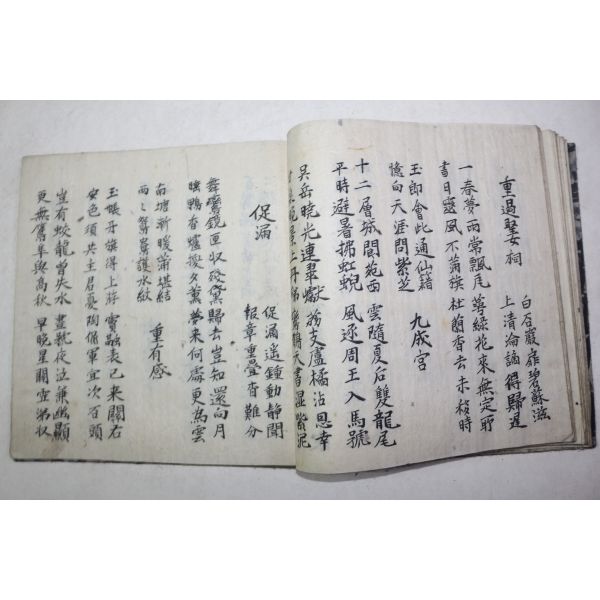 重過聖女祠
白石巖扉碧蘚滋
上清淪謫得歸遲
一春夢雨常飄瓦　萼綠花來無定所
盡日靈風不滿旗　杜蘭香去未移時
玉郎會此通仙籍
憶向天涯問紫芝
九成宮
十二層城閬苑西　雲隨夏后雙龍尾
平時避暑拂虹蜺　風逐周王八馬蹄
吳岳曉光連翠巘　荔支盧橘沾恩幸
晚景上丹梯　鸞鵲天書濕紫泥
促漏
促漏遙鐘動靜聞
報章重疊杳難分
舞鸞鏡匣收殘黛　歸去豈知還向月
睡鴨香爐換夕薰　夢來何處更為雲
南塘漸暖蒲堪結
兩々鴛鴦護水紋
重有感
玉帳牙旗得上游　竇融表已來關右
安危須共主君憂　陶侃軍宜次石頭
豈有蛟龍曾失水　晝號夜泣兼幽顯
更無鷹隼與高秋　早晚星關雪涕收